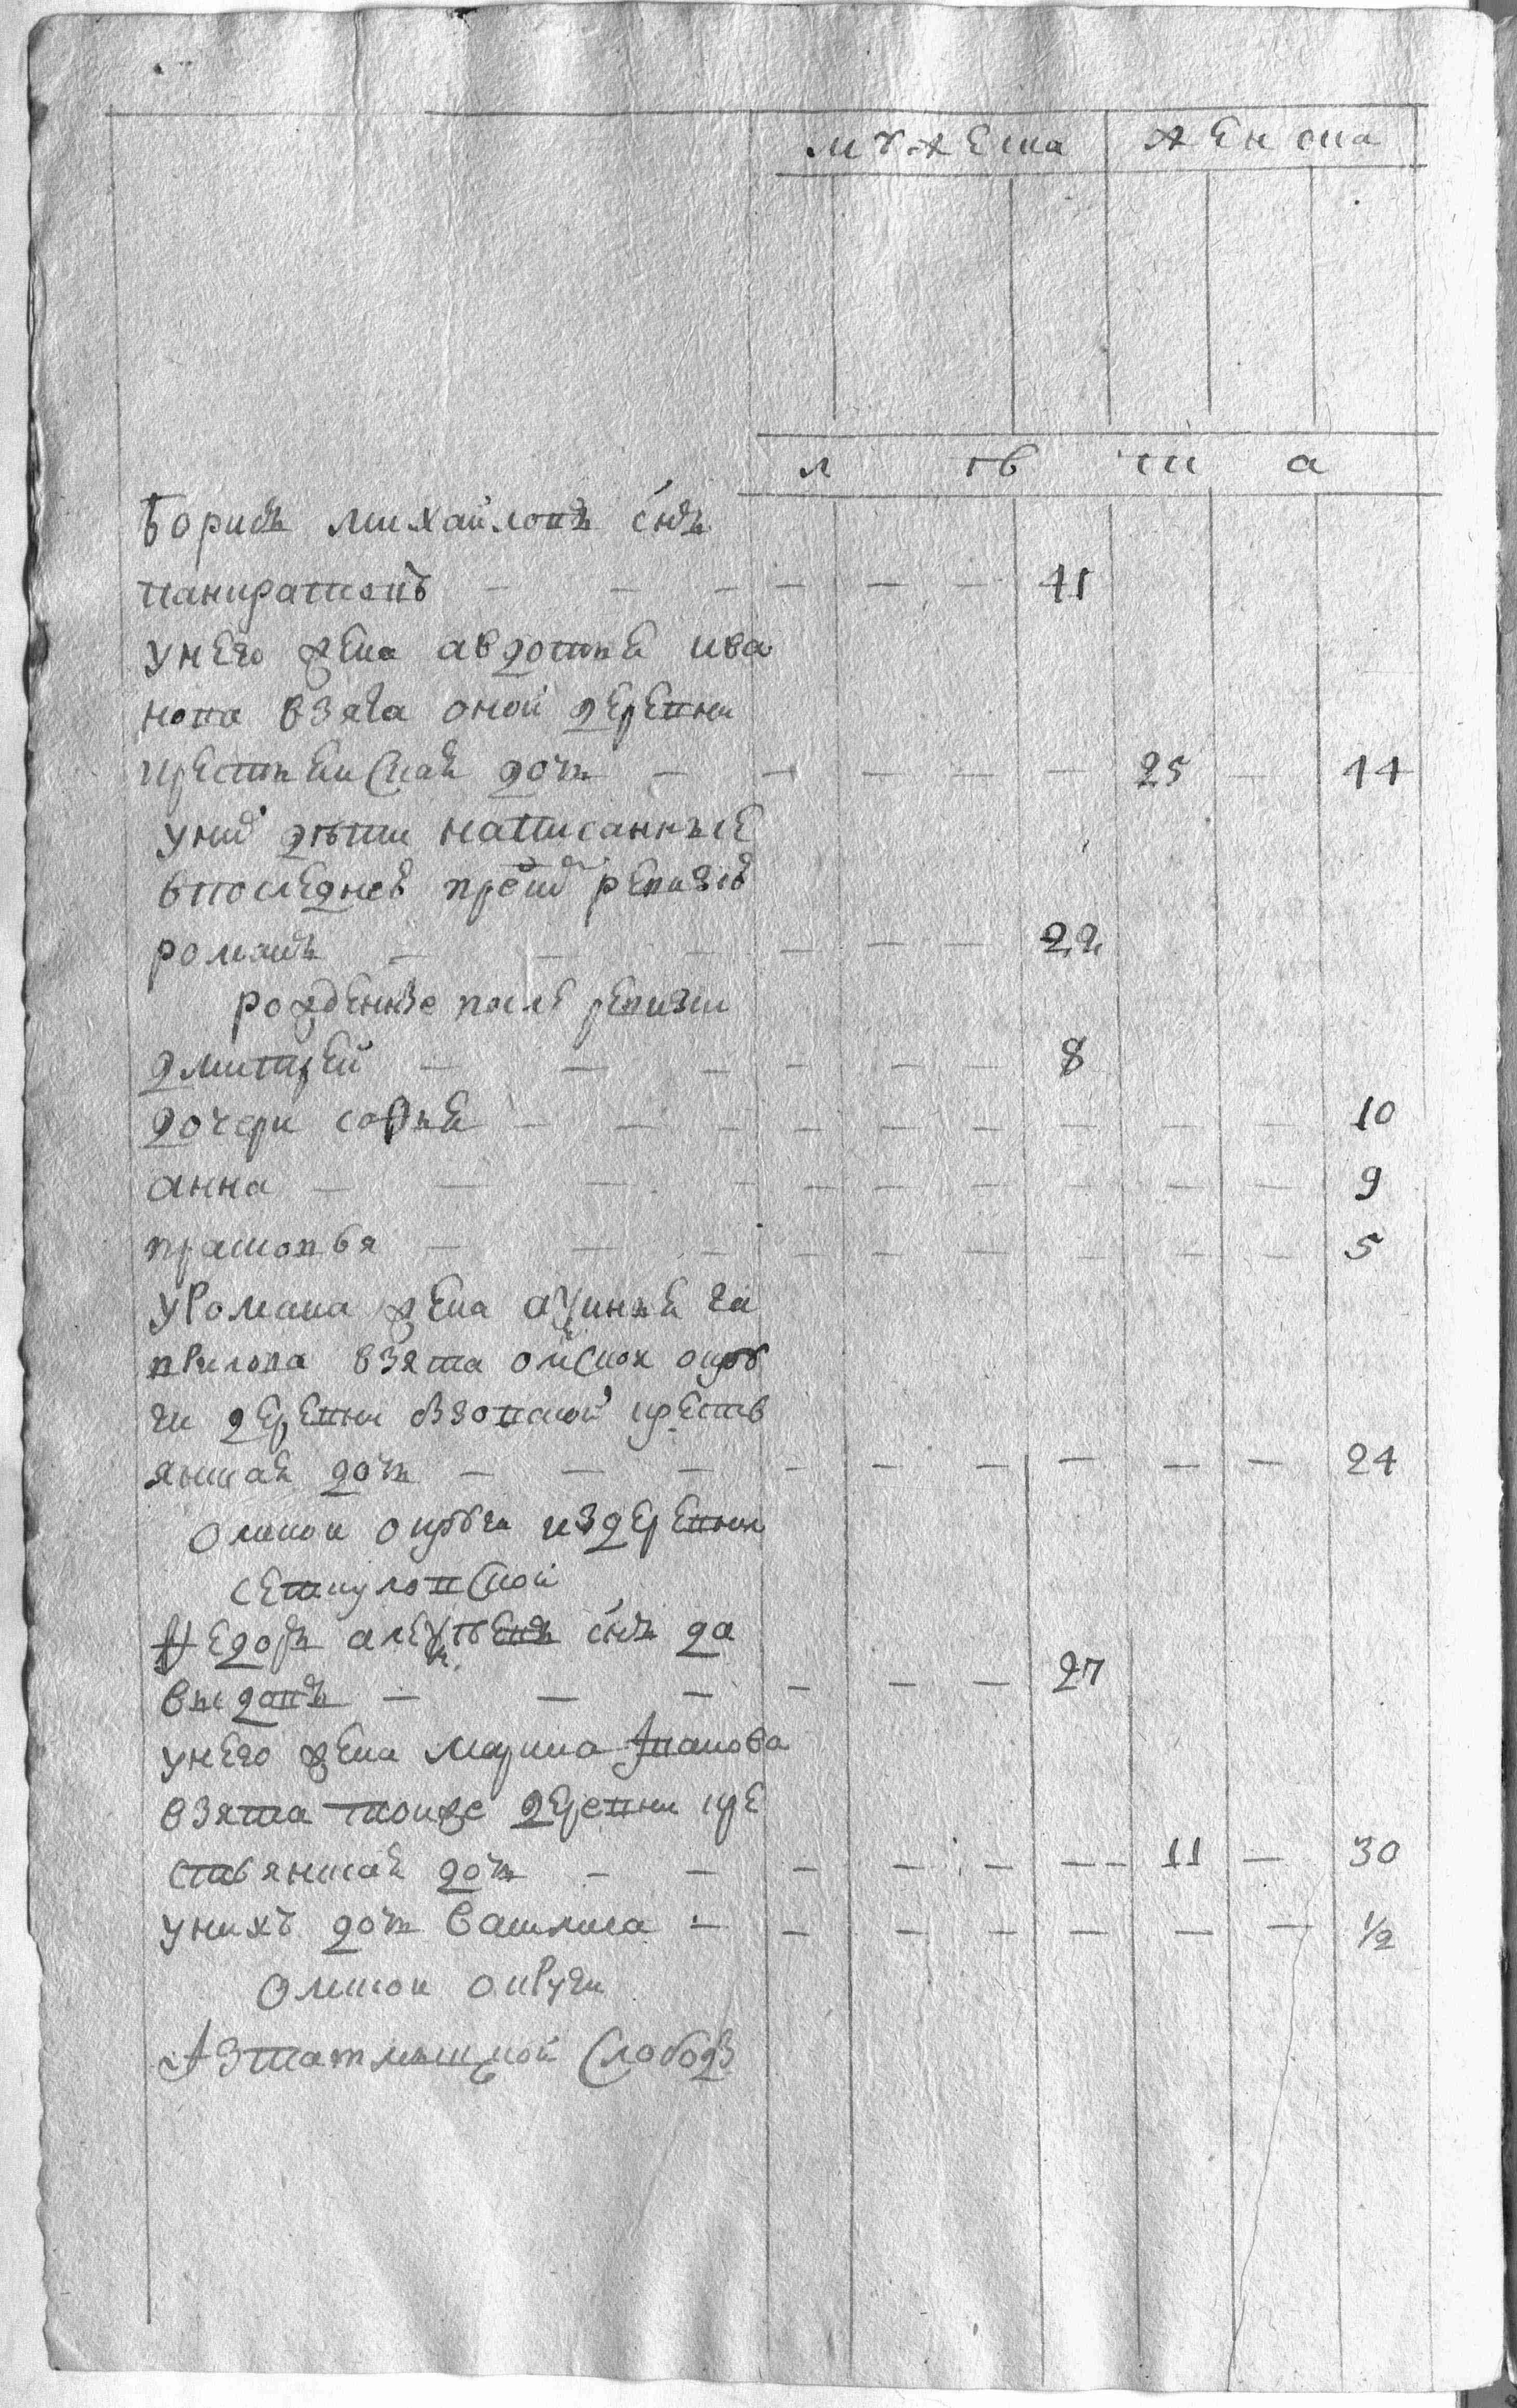 мужеска женска
л ѣ т а
Борисъ михайловъ снъ
панкратовъ — — — 41
унего жена авдотья ива
нова взята оной деревни
крестьянская дочь — — 25 — 44
уних дѣти написанные
впоследней пред ревизiе
романъ — — — 22
рожденые после ревизии
дмитрей — — — 8
дочери софья — — — 10
анна — — — 9
прасковья — — — 5
Уромана жена аѵинья га
врилова взята омской окру
ги деревни крестья
янская дочь — — — 24
омской округи издеревни
сеткуловской
Ѳедоръ алеѯѣевъ снъ да
выдовъ — — — 27
унего жена марина Iванова
взята тоиже деревни кре
стьянская дочь — — 11 — 30
унихъ дочь василиса — — ½
Омской округи
слободы